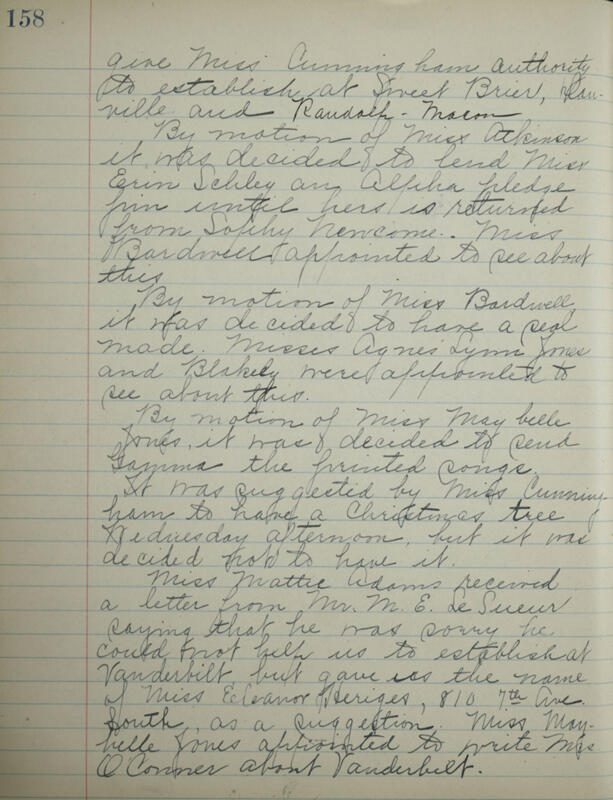 158
give Miss Cunningham authority
to establish at Sweet Brier, Dan-
ville and Randolph-Macon
By motion of Miss Atkinson
it was decided to lend Miss
Erin Schley an Alpha pledge
pin until hers is returned
from Sophy Newcome. Miss
Bardwell appointed to see about
this
By motion of Miss Bardwell,
it was decided to have a seal
made. Misses Agnes Lynn Jones
and Blakely were appointed to
see about this.
By motion of Miss May belle
Jones, it was decided to send
Gamma the printed songs.
It was suggested by Miss Cunning-
ham to have a Christmas tree
Wednesday afternoon, but it was
decided not to have it.
Miss Mattie Adams received
a letter from Mr. M. E. Le Sueur
saying that he was sorry he
could not help us to establish at
Vanderbilt, but gave us the name
of Miss Eleanor Heriges, 810 7th Ave.
South, as a suggestion. Miss May-
belle Jones appointed to write Miss
O'Conner about Vanderbilt.